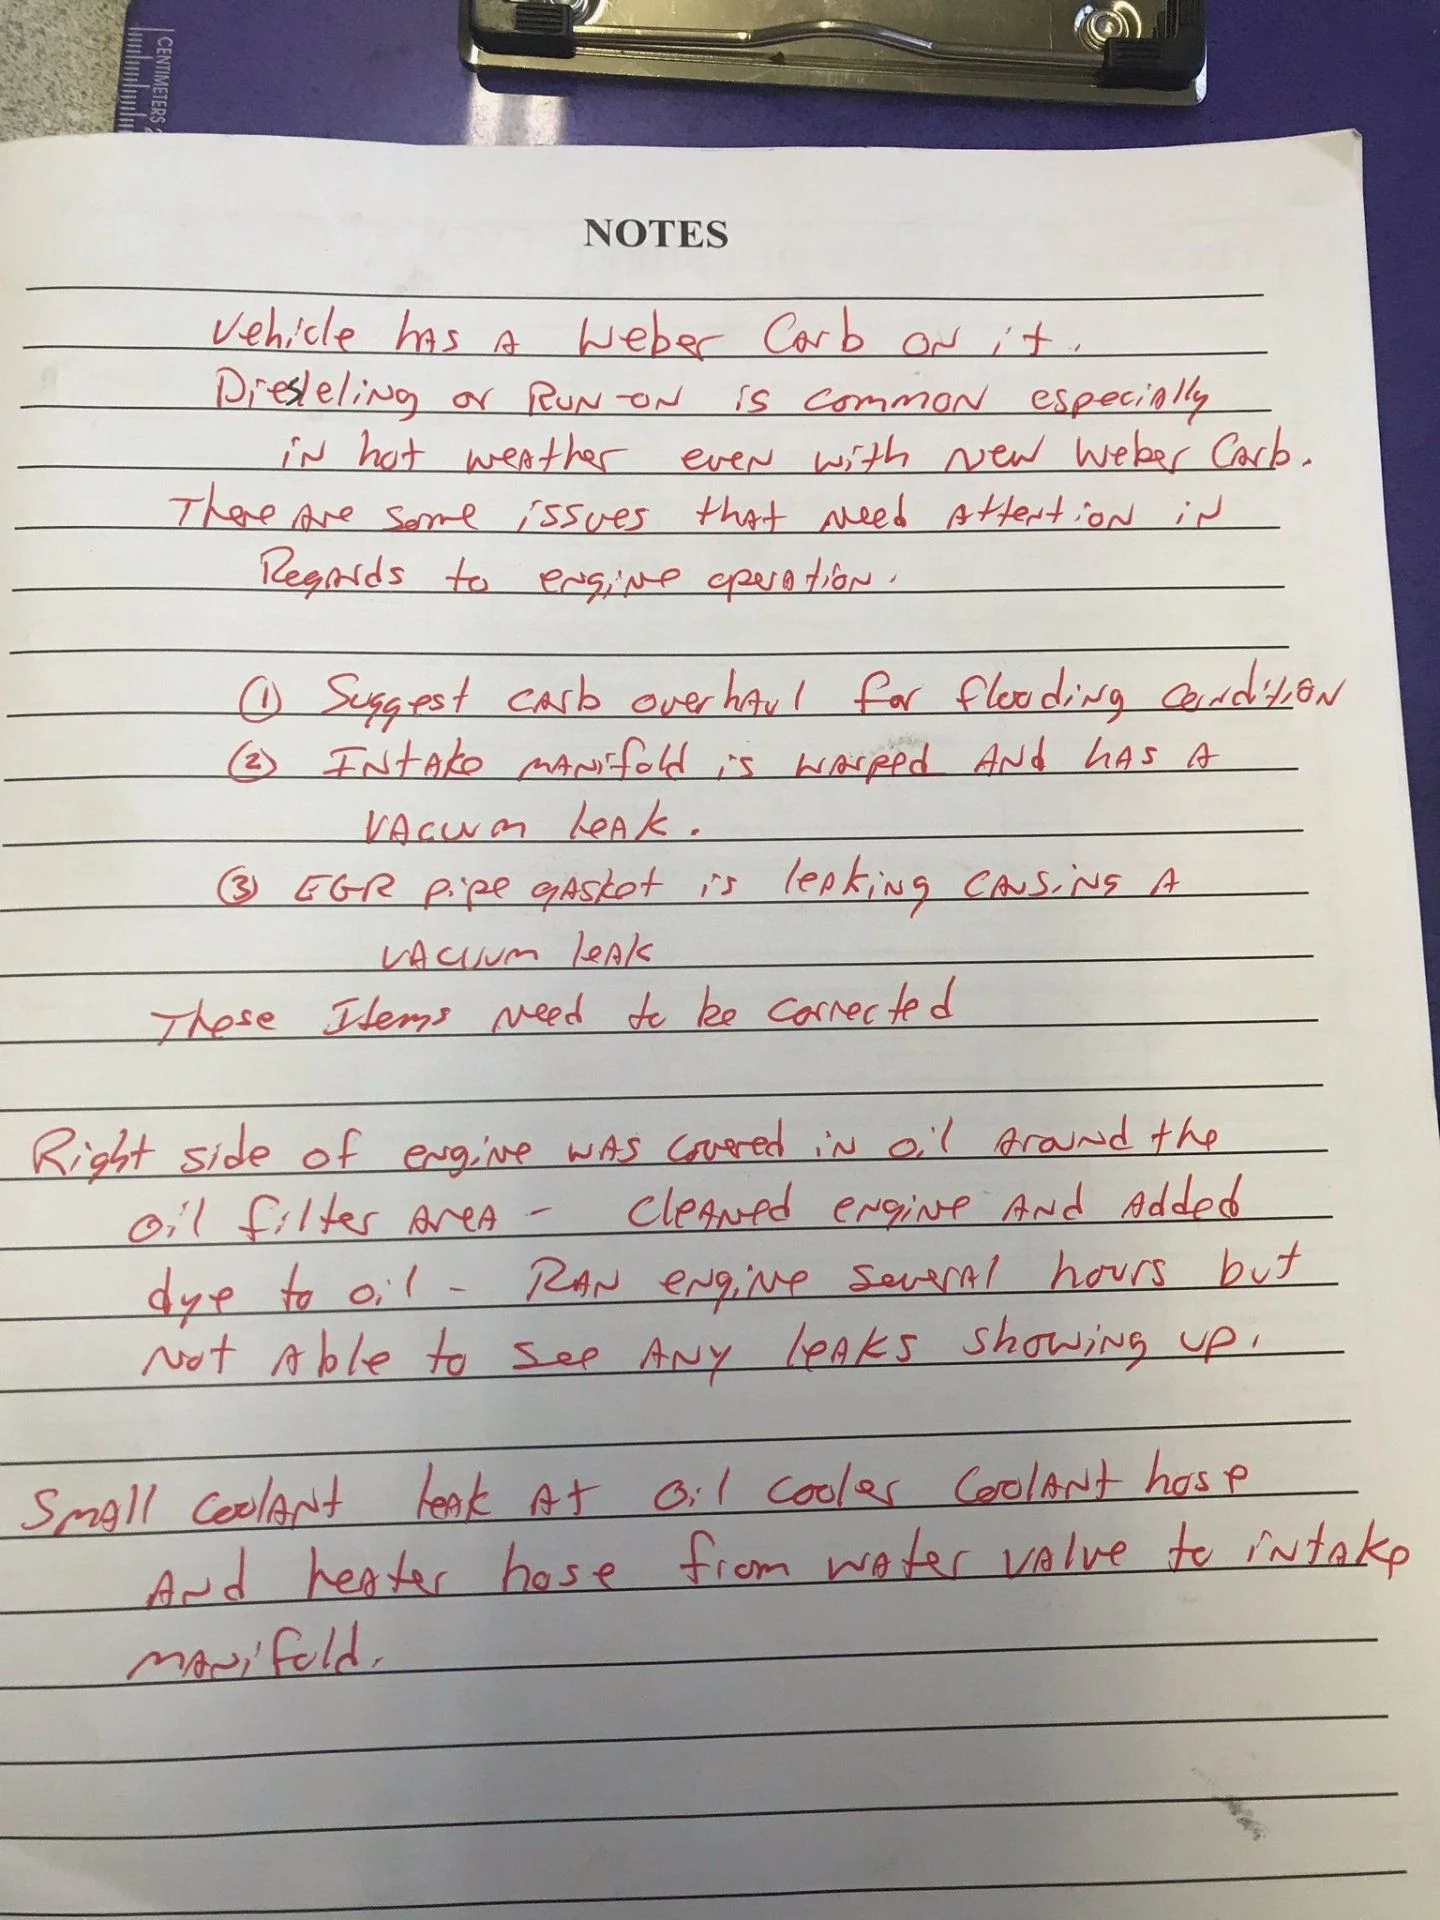 CENTIMETERS 2
NOTES
Vehicle has a Weber Carb on it.
Dieseling or Run-on is common especially
in hot weather even with new Weber Carb.
There are some issues that need attention in
Regards to engine operation.
① Suggest carb overhaul for flooding condition
② Intake manifold is warped and has a
vacuum leak.
③ EGR pipe gasket is leaking causing a
vacuum leak
These Items need to be corrected
Right side of engine was covered in oil around the
oil filter area - cleaned engine and added
dye to oil - Ran engine several hours but
not able to see any leaks showing up.
Small coolant leak at oil cooler coolant hose
and heater hose from water valve to intake
manifold.